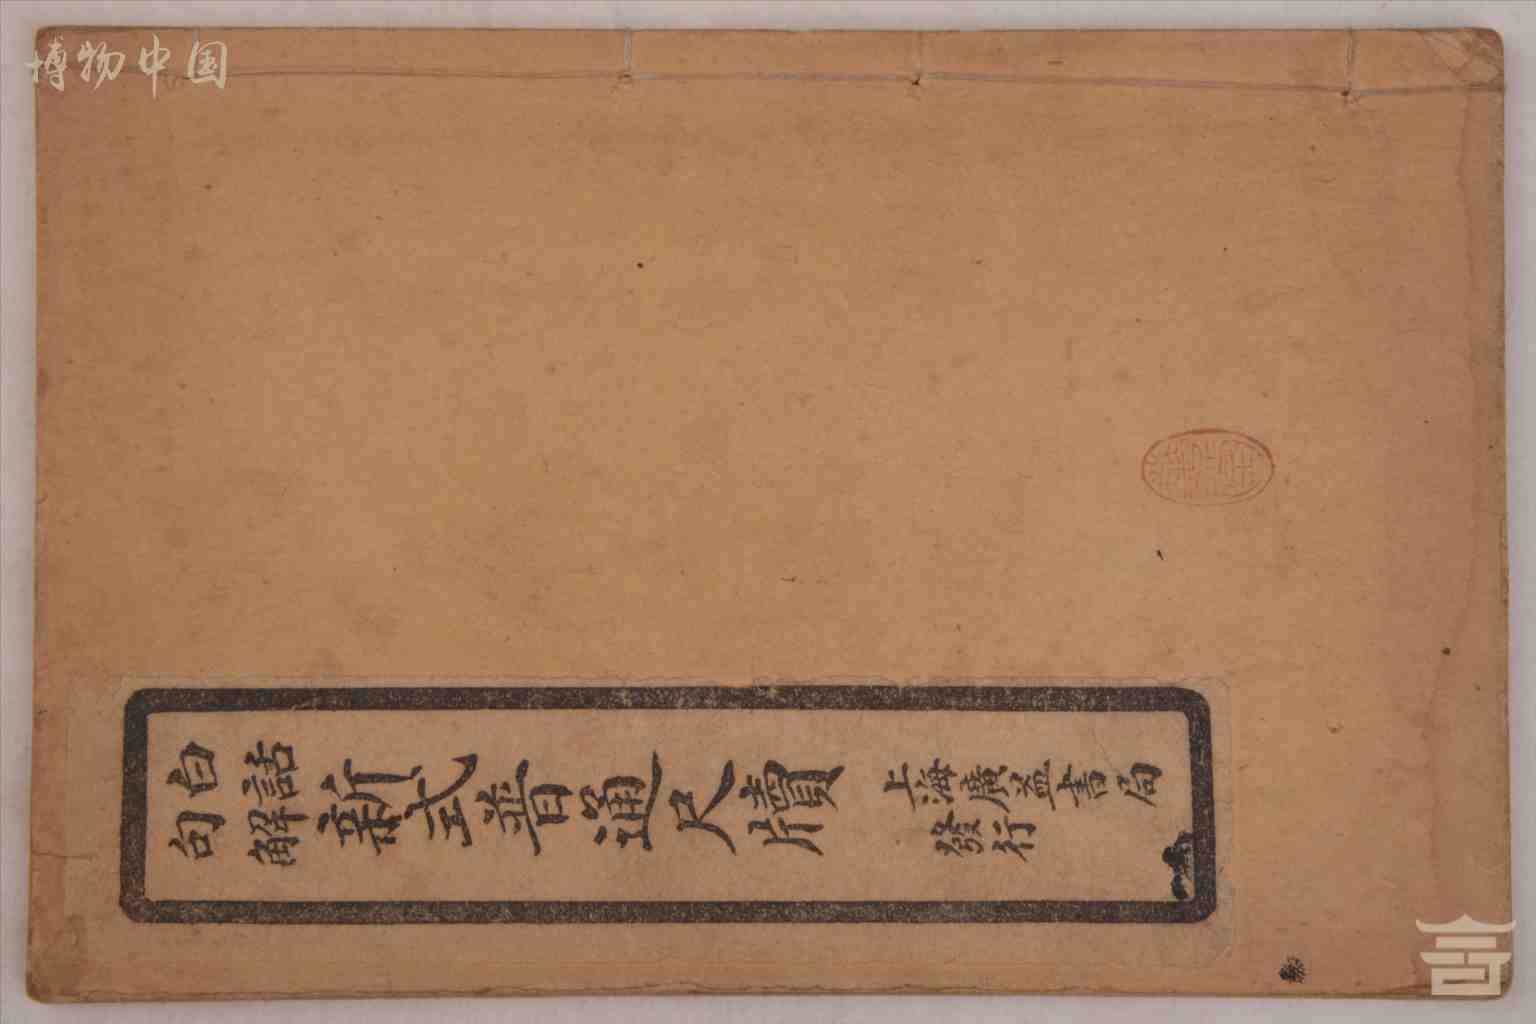 博物中国
白話
句解
新式普通尺牘
上海廣益書局
發行